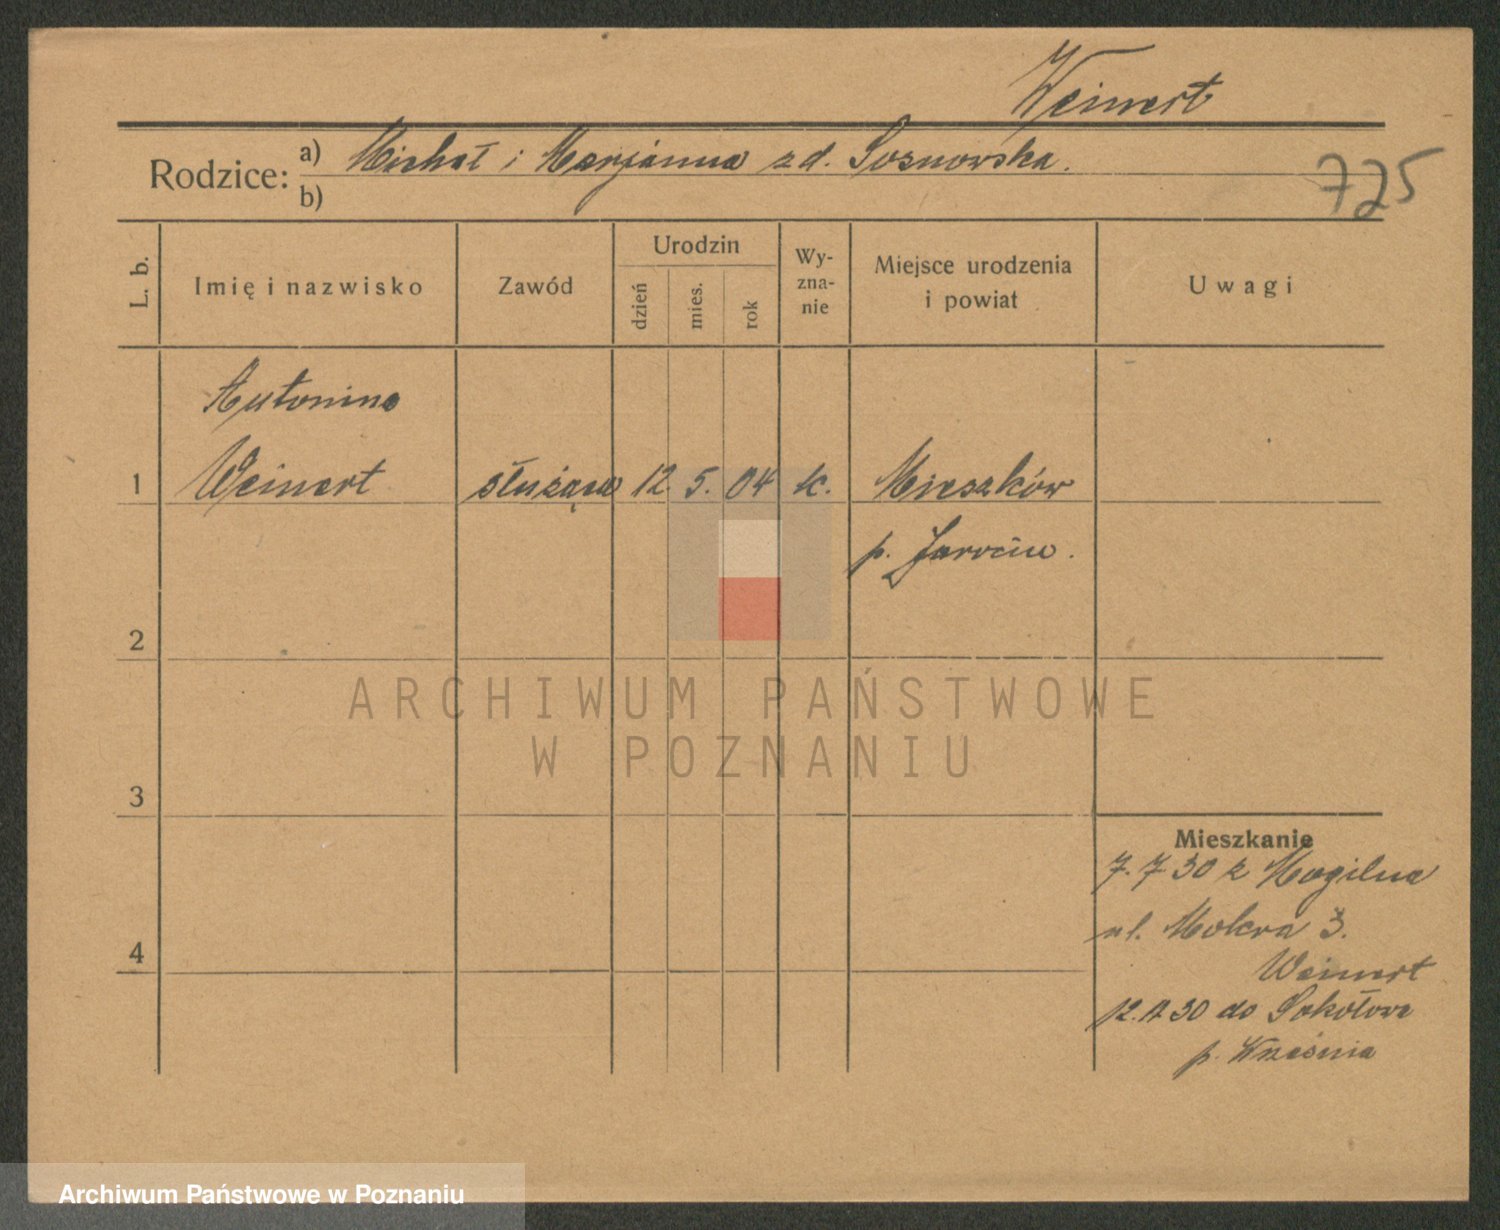 Weinert
Rodzice: a) Michał i Marjanna zd. Sosnowska.
b)
725
L. b.
Imię i nazwisko
Zawód
Urodzin
dzień
mies.
rok
Wy-
zna-
nie
Miejsce urodzenia
i powiat
Uwagi
Antonina
1 Weinert służąca 12. 5. 04 k. Mieszków
p. Jarocin.
2
ARCHIWUM PAŃSTWOWE
W POZNANIU
3
Mieszkanie
7. 7 30 z Mogilna
ul. Mokra 3.
4
Weinert
30 do Sokołowa
p. Września
Archiwum Państwowe w Poznaniu